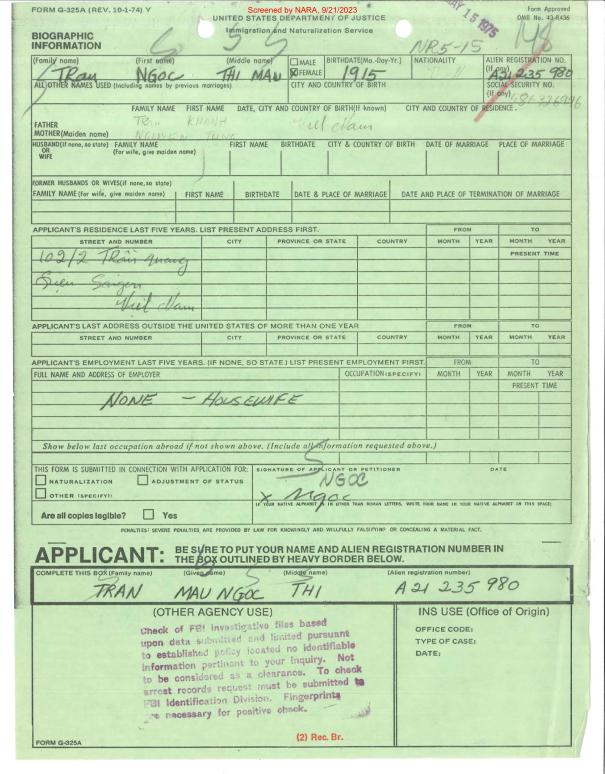 Screened by NARA, 9/21/2023
FORM G-325A (REV. 10-1-74) Y
UNITED STATES DEPARTMENT OF JUSTICE
Immigration and Naturalization Service
Form Approved
OMB No. 43-R436
MAY 15 1975
BIOGRAPHIC
INFORMATION
NR5-15
148
(Family name) (First name) (Middle name) MALE FEMALE BIRTHDATE(Mo.-Day-Yr.) NATIONALITY ALIEN REGISTRATION NO. (If any)
Tran NGOC THI MAU X 1915 A21 235 980
ALL OTHER NAMES USED (Including names by previous marriages) CITY AND COUNTRY OF BIRTH SOCIAL SECURITY NO. (If any)
FAMILY NAME FIRST NAME DATE, CITY AND COUNTRY OF BIRTH(If known) CITY AND COUNTRY OF RESIDENCE.
FATHER TRAN KHANH Viet Nam
MOTHER(Maiden name) NGUYEN
HUSBAND(If none, so state) OR WIFE FAMILY NAME (For wife, give maiden name) FIRST NAME BIRTHDATE CITY & COUNTRY OF BIRTH DATE OF MARRIAGE PLACE OF MARRIAGE
FORMER HUSBANDS OR WIVES(if none, so state)
FAMILY NAME (For wife, give maiden name) FIRST NAME BIRTHDATE DATE & PLACE OF MARRIAGE DATE AND PLACE OF TERMINATION OF MARRIAGE
APPLICANT'S RESIDENCE LAST FIVE YEARS. LIST PRESENT ADDRESS FIRST. FROM TO
STREET AND NUMBER CITY PROVINCE OR STATE COUNTRY MONTH YEAR MONTH YEAR
PRESENT TIME
102/2 Trần quang
Saigon
Việt Nam
APPLICANT'S LAST ADDRESS OUTSIDE THE UNITED STATES OF MORE THAN ONE YEAR FROM TO
STREET AND NUMBER CITY PROVINCE OR STATE COUNTRY MONTH YEAR MONTH YEAR
APPLICANT'S EMPLOYMENT LAST FIVE YEARS. (IF NONE, SO STATE.) LIST PRESENT EMPLOYMENT FIRST. FROM TO
FULL NAME AND ADDRESS OF EMPLOYER OCCUPATION(SPECIFY) MONTH YEAR MONTH YEAR
PRESENT TIME
NONE - HOUSEWIFE
Show below last occupation abroad if not shown above. (Include all information requested above.)
THIS FORM IS SUBMITTED IN CONNECTION WITH APPLICATION FOR: SIGNATURE OF APPLICANT OR PETITIONER DATE
NATURALIZATION ADJUSTMENT OF STATUS
NGOC
OTHER (SPECIFY):
x Ngọc
IF YOUR NATIVE ALPHABET IS IN OTHER THAN ROMAN LETTERS, WRITE YOUR NAME IN YOUR NATIVE ALPHABET IN THIS SPACE:
Are all copies legible? Yes
PENALTIES: SEVERE PENALTIES ARE PROVIDED BY LAW FOR KNOWINGLY AND WILLFULLY FALSIFYING OR CONCEALING A MATERIAL FACT.
APPLICANT: BE SURE TO PUT YOUR NAME AND ALIEN REGISTRATION NUMBER IN
THE BOX OUTLINED BY HEAVY BORDER BELOW.
COMPLETE THIS BOX (Family name) (Given name) (Middle name) (Alien registration number)
TRAN MAU NGOC THI A 21 235 980
(OTHER AGENCY USE) INS USE (Office of Origin)
OFFICE CODE:
TYPE OF CASE:
DATE:
Check of FBI investigative files based
upon data submitted and limited pursuant
to established policy located no identifiable
information pertinent to your inquiry. Not
to be considered as a clearance. To check
arrest records request must be submitted to
FBI Identification Division. Fingerprints
are necessary for positive check.
(2) Rec. Br.
FORM G-325A